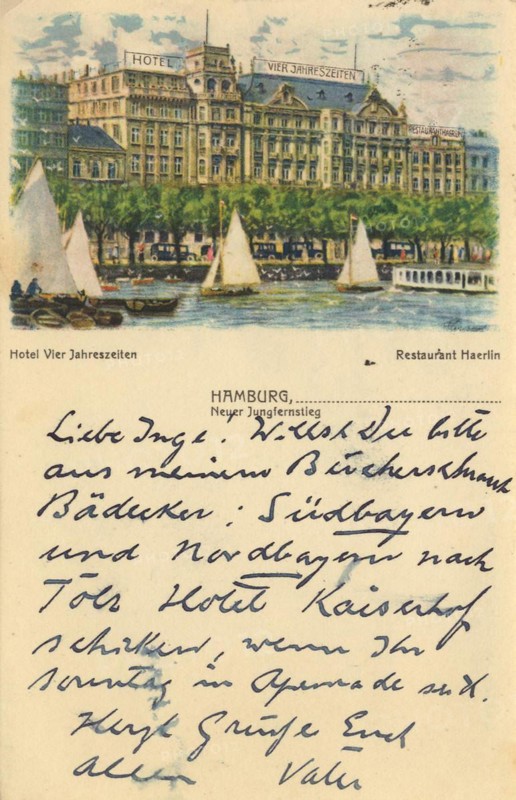 HOTEL
VIER JAHRESZEITEN
RESTAURANT HAERLIN
Hotel Vier Jahreszeiten
Restaurant Haerlin
HAMBURG,
Neuer Jungfernstieg
Liebe Inge! Willst Du bitte
aus meinem Bücherschrank
Bädecker: Südbayern
und Nordbayern nach
Tölz Hotel Kaiserhof
schicken, wenn Ihr
Sonntag in seid.
Herzl Grüße Euch
allen Vater